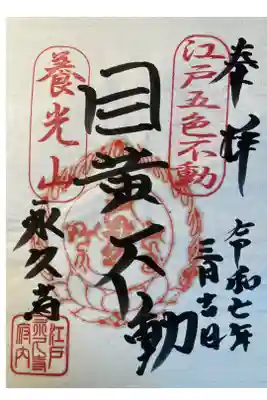 奉拝
令和七年
三月吉日
江戸五色不動
目黄不動
養光山
永久寺